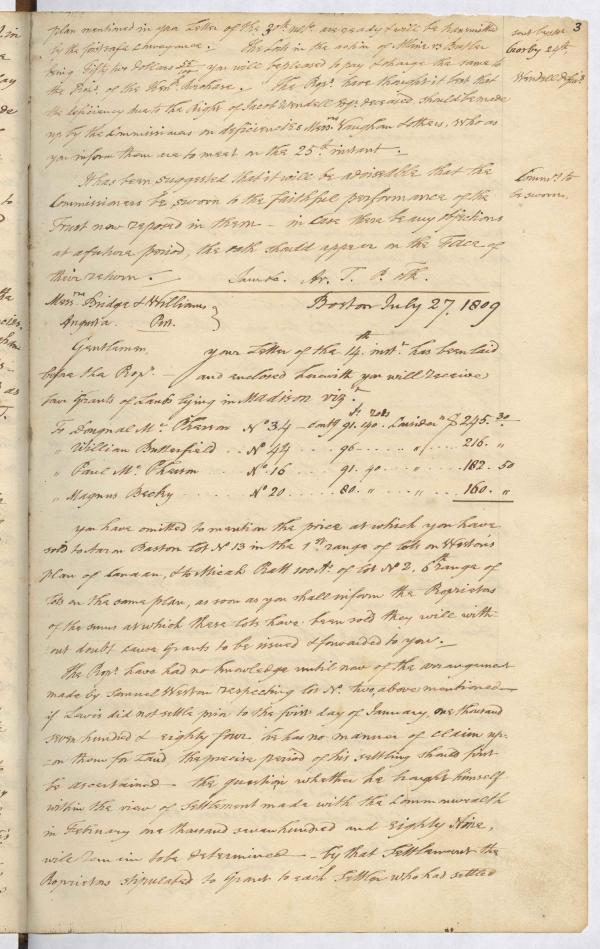 3
plan mentioned in your Letter of the 20th inst. are ready & will be transmitted
by the first safe conveyance. The Costs in the action of Miner vs Butler
being Fifty two dollars you will be pleased to pay & charge the same to
the Props. of the Kenk. Purchase. The Props. have thought it best that
the deficiency due to the Right of Jacob Wendell Esqr. deceased, should be made
up by the Commissioners on deficiencies Messrs Vaughan & others, who as
you inform them are to meet on the 25th instant.
It has been suggested that it will be adviseable that the
Commissioners be sworn to the faithful performance of the
Trust now reposed in them - in case there be any objections
at a future period, the oath should appear on the Face of
their return. Ar. T. P. Ck.
cost
Crosby 24th
Wendell's
Commrs to
be sworn.
Messrs Bridge & Williams } Boston July 27. 1809
Augusta.
Gentlemen, your Letter of the 14th inst. has been laid
before the Props. - and enclosed herewith you will receive
four Grants of Lands lying in Madison vizt
To Dougnal Mc Pherson No 34 - contg 91. 40. Consider'n $ 245. 30
" William Butterfield .. No 44 .... 96 ..... " .. 216. "
" Paul Mc Pherson ... No. 16 .... 91. 40 .... " .. 182. 50
" Magnus Becky ..... No 20 .... 80. " .... " .. 160. "
you have omitted to mention the price at which you have
sold to Aaron Baston Lot No 13 in the 1st range of lots on Weston's
plan of Canaan, & to Micah Ratt 100 As. of lot No 2, 6th range of
lots on the same plan, as soon as you shall inform the Proprietors
of the sums at which these Lots have been sold they will with-
out doubt cause Grants to be issued & forwarded to you.
The Props. have had no knowledge until now of the arrangement
made by Samuel Weston respecting lot No. two, above mentioned
if Lewis did not settle prior to the first day of January, one thousand
seven hundred & eighty four he has no manner of claim up-
-on them for Land, the precise period of his settling should first
be ascertained - the question whether he brought himself
within the view of settlement made with the Commonwealth
in February one thousand seven hundred and eighty Nine,
will to be determined - by that Settlement the
Proprietors stipulated to Grant to each Settler who had settled